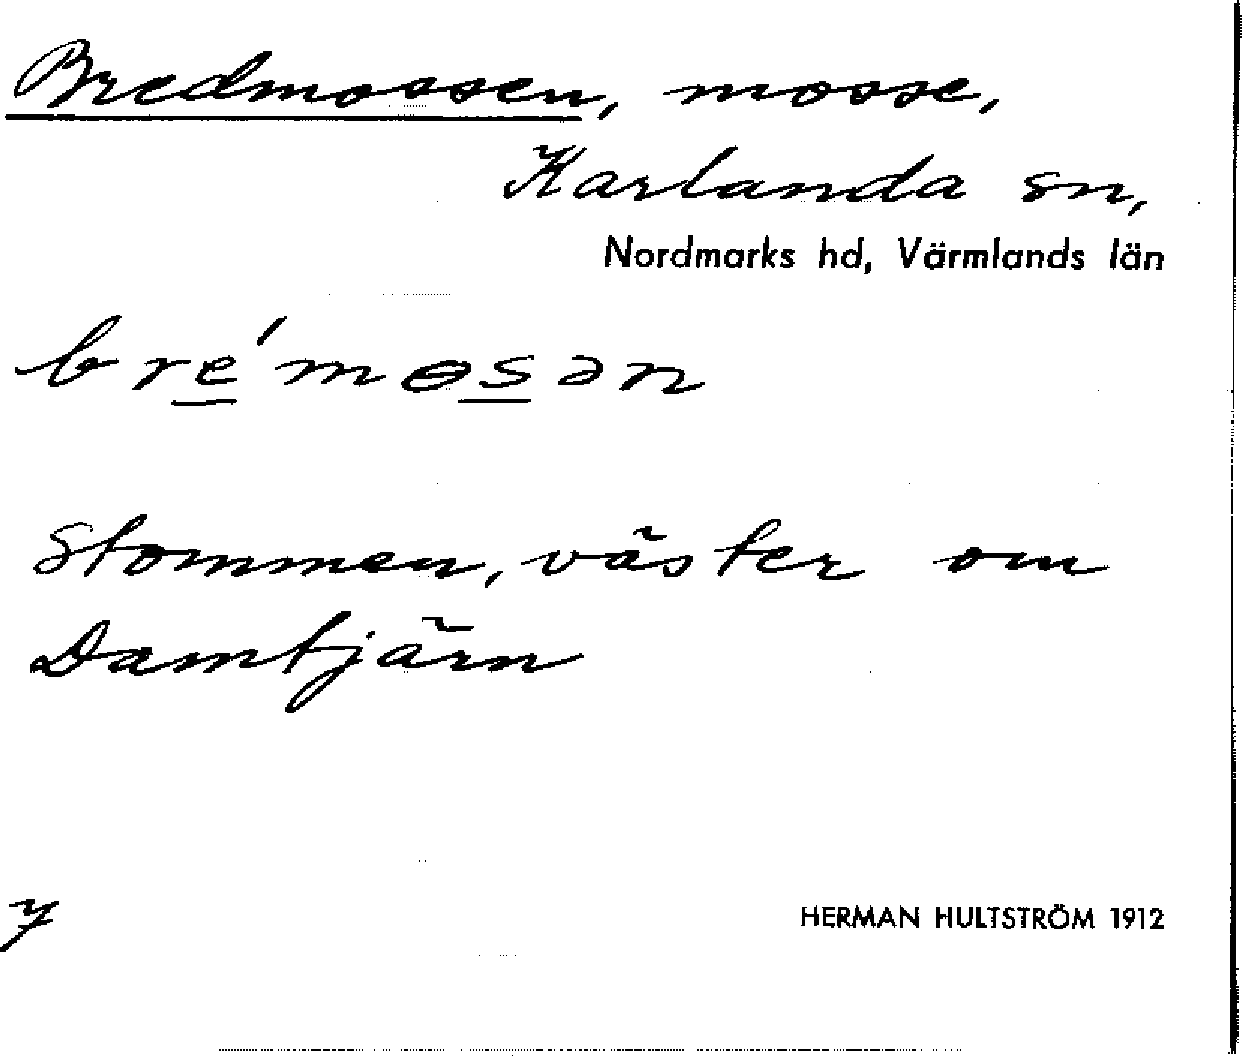 Bredmossen, mosse,
Karlanda sn,
Nordmarks hd, Värmlands län
bre̲´mɵs̲ən
Stommen, väster om
Damtjärn
7
HERMAN HULTSTRÖM 1912